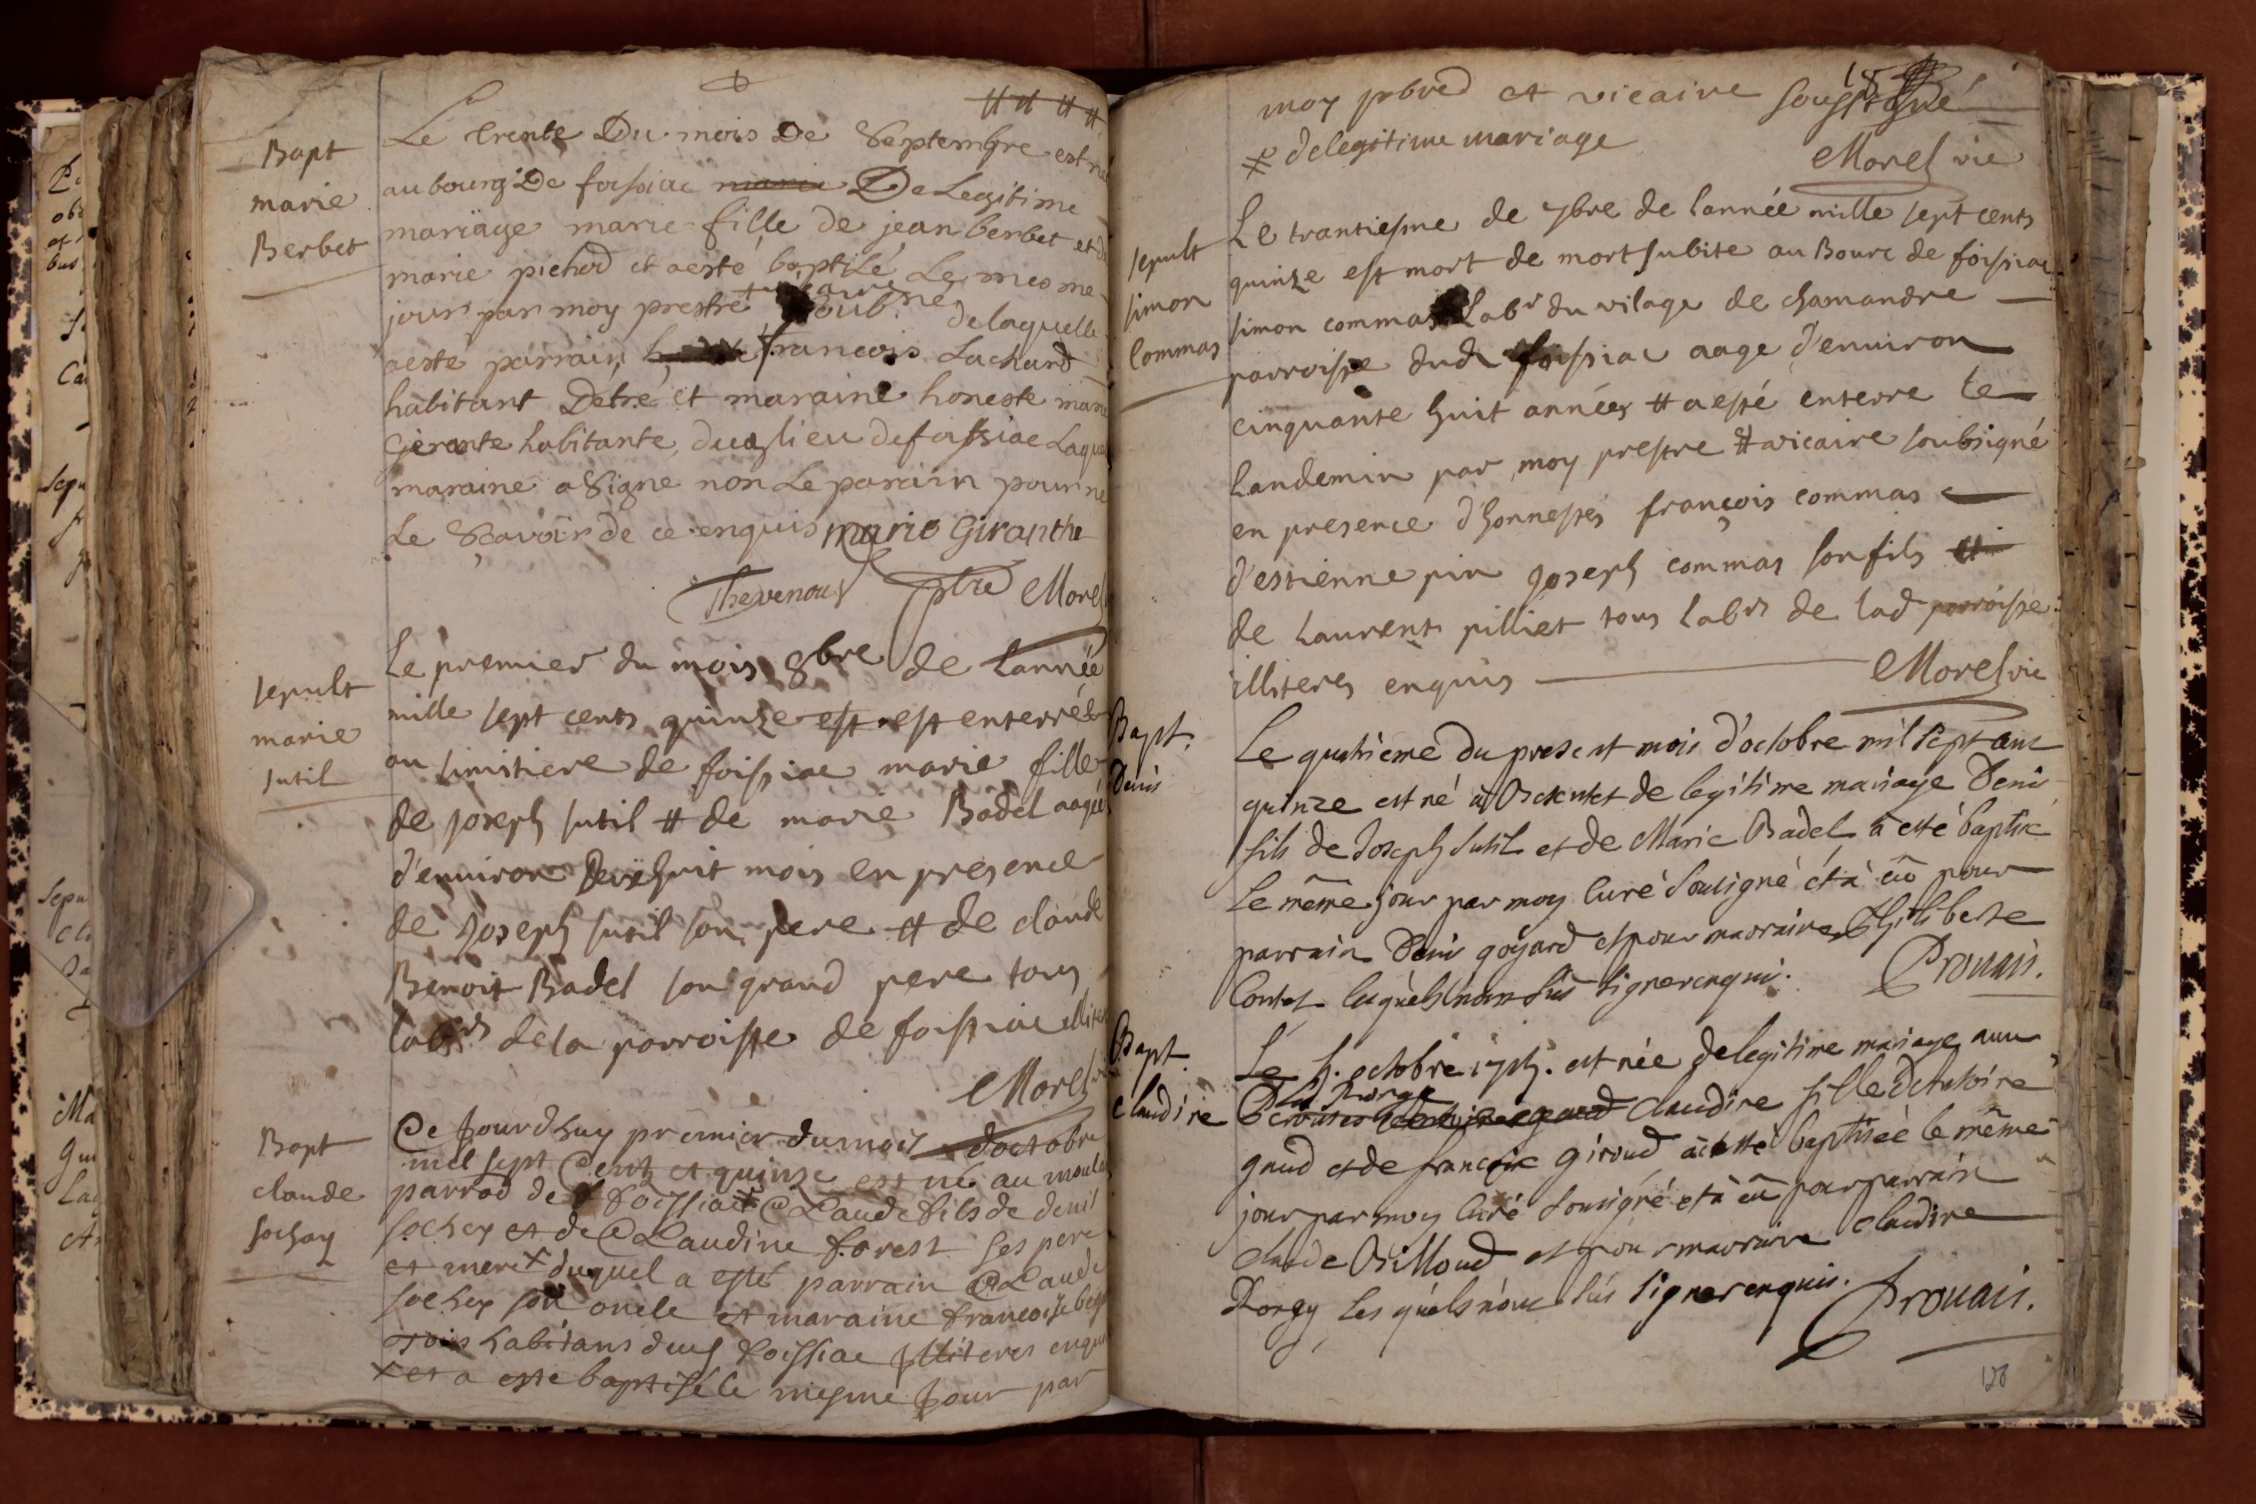 Bapt
marie
Berbet
Le trente Du mois De Septembre est né
au bourg De foissiac marie De Legitime
mariage marie fille de jean berbet et de
marie pichod et a este baptisé Le mesme
jour par moy prestre vicaire soub.né delaquelle
a este parrain françois Lachard
habitant Detré et maraine honeste marie
Gerante habitante dud lieu de foissiac Laquelle
maraine a Signe non Le parain pour ne
Le Sçavoir de ce enquis marie Giranthe
Thevenoux ptre Morel
sepult
marie
sutil
Le premier du mois 8bre de l'année
mille sept cents quinze est est enterrée
au simitiere de foissiac marie fille
de joseph sutil # de marie Badel aagée
d'environ dixhuit mois en presence
de joseph sutil son pere # de claude
Benoit Badel son grand pere tous
labrs de la parroisse de foissiac illiteres
Morel
Bapt
claude
sochay
Ce Jourdhuy premier du mois d'octobre
mil sept Cent et quinze est né au moulin
parrod de foissiac # CLaude fils de denis
sochey et de CLaudine forest ses pere
et mere x duquel a esté parrain CLaude
sochey son oncle et maraine francoise
tous habitans dud foissiac illiteres enquis
x et a este baptisé le mesme Jour par
moy pbred et vicaire soussigné
# de legitime mariage
Morel vic
sepult
simon
Commas
Le trantiesme de 7bre de l'année mille sept cents
quinze est mort de mort subite au Bourc de foissiac
simon commas Labr du vilage de chamandre
parroisse dud foissiac aage d'environ
cinquante huit années # a esté enterre le
landemin par moy prestre # vicaire soubsigné
en presence d'honnestes françois commas
d'estienne pin joseph commas son fils et
de laurents pilliet tous labrs de lad parroisse
illiteres enquis Morel vic
Bapt.
Denis
Le quatrième du present mois d'octobre mil sept cent
quinze est né à de legitime mariage Denis
fils de Joseph Sutil et de Marie Badel, a esté baptisé
Le même jour par moy Curé Sousigné et a eû pour
parrain Denis goyard et pour marraine Philiberte
Contet lesquels n'ont sûs signer enquis. Prouais.
Bapt.
Claudine
Le 5. octobre 1715. est née de legitime mariage aux
Claudine fille d'Antoine
gaud et de françoise giroud a estté baptiséé le même
jour par moy Curé Sousigné et a eû pour parrain
claude Billoud et pour marraine claudine
Dorgy, Les quels n'ont sûs signer enquis. Prouais.
128